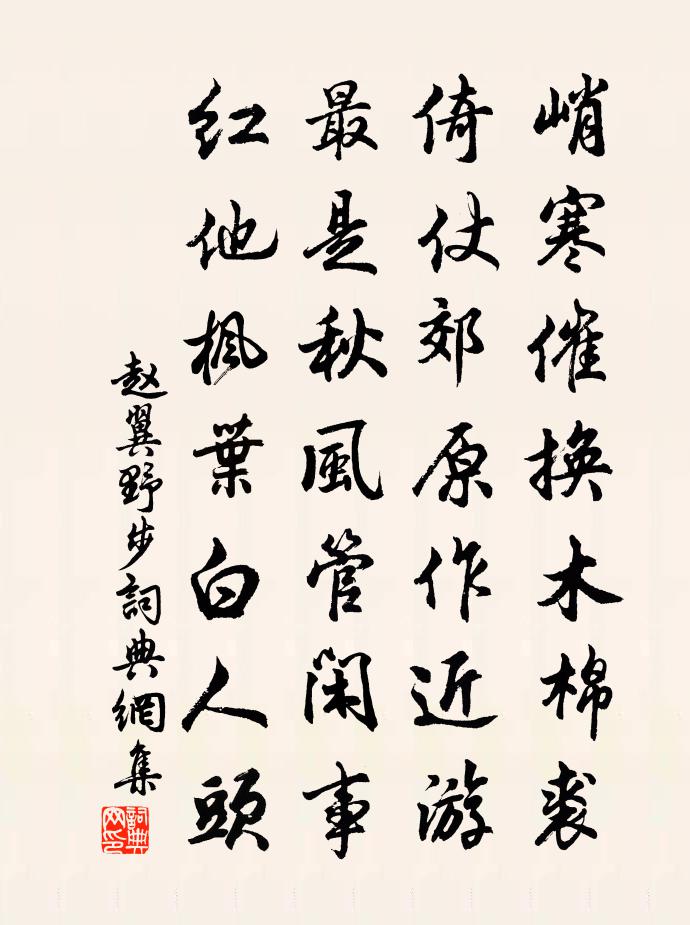 峭寒催換木棉裘
倚仗郊原作近游
最是秋風管閑事
紅他楓葉白人頭
赵翼野步詞典網集
詞典网印